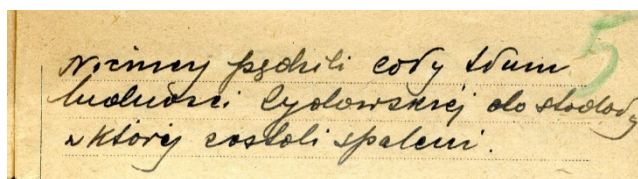 Niemcy pędzili cały tłum 5
ludności żydowskiej do stodoły
w której zostali spaleni.